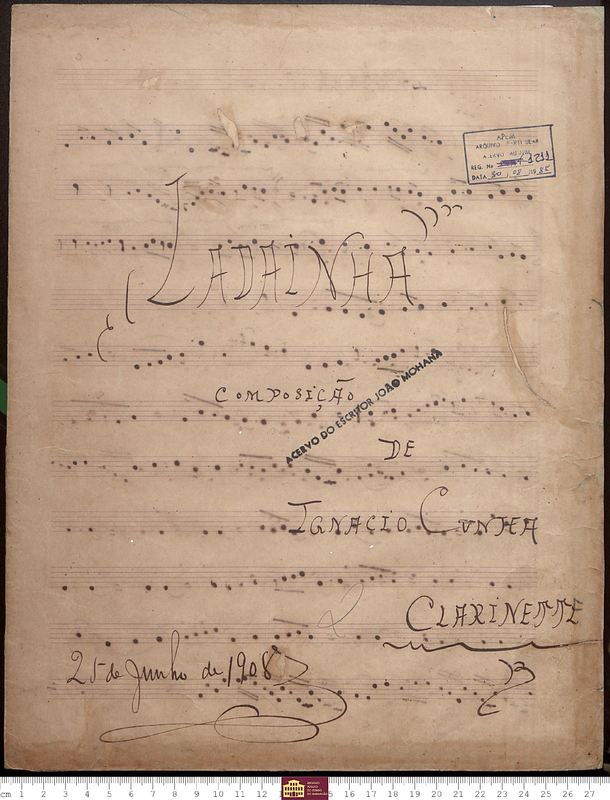 APEM
ARQUIVO PARTICULAR
ACERVO
REG. No 1211
DATA 30 / 08 /19 85
LADAINHA
COMPOSIÇÃO
ACERVO DO ESCRITOR JOÃO MOHANA
DE
IGNACIO CUNHA
CLARINETTE
25 de Junho de 1908
cm 1 2 3 4 5 6 7 8 9 10 11 12 15 16 17 18 19 20 21 22 23 24 25 26 27